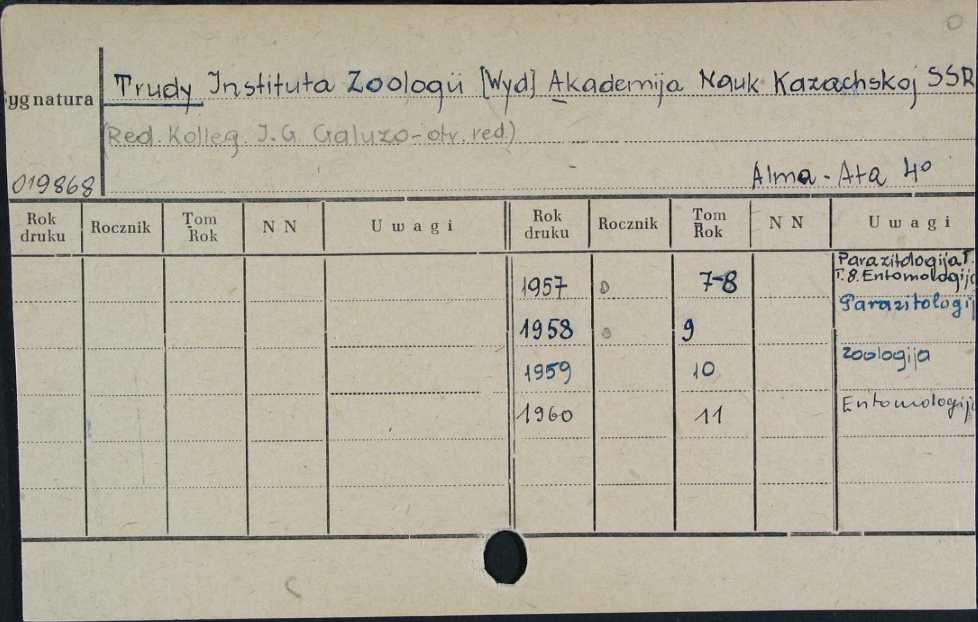 Trudy Instituta Zoologii [Wyd] Akademija Nauk Kazachskoj SSR
ygnatura
(Red. Kolleg. I.G Galuzo-otv. red)
019868
Alma-Ata 4°
Rok druku Rocznik Tom Rok N N Uwagi Rok druku Rocznik Tom Rok N N Uwagi
Parazitologija T.
T.8. Entomologija
1957 7-8
Parazitologij
1958 9
Zoologija
1959 10
Entomologija
1960 11